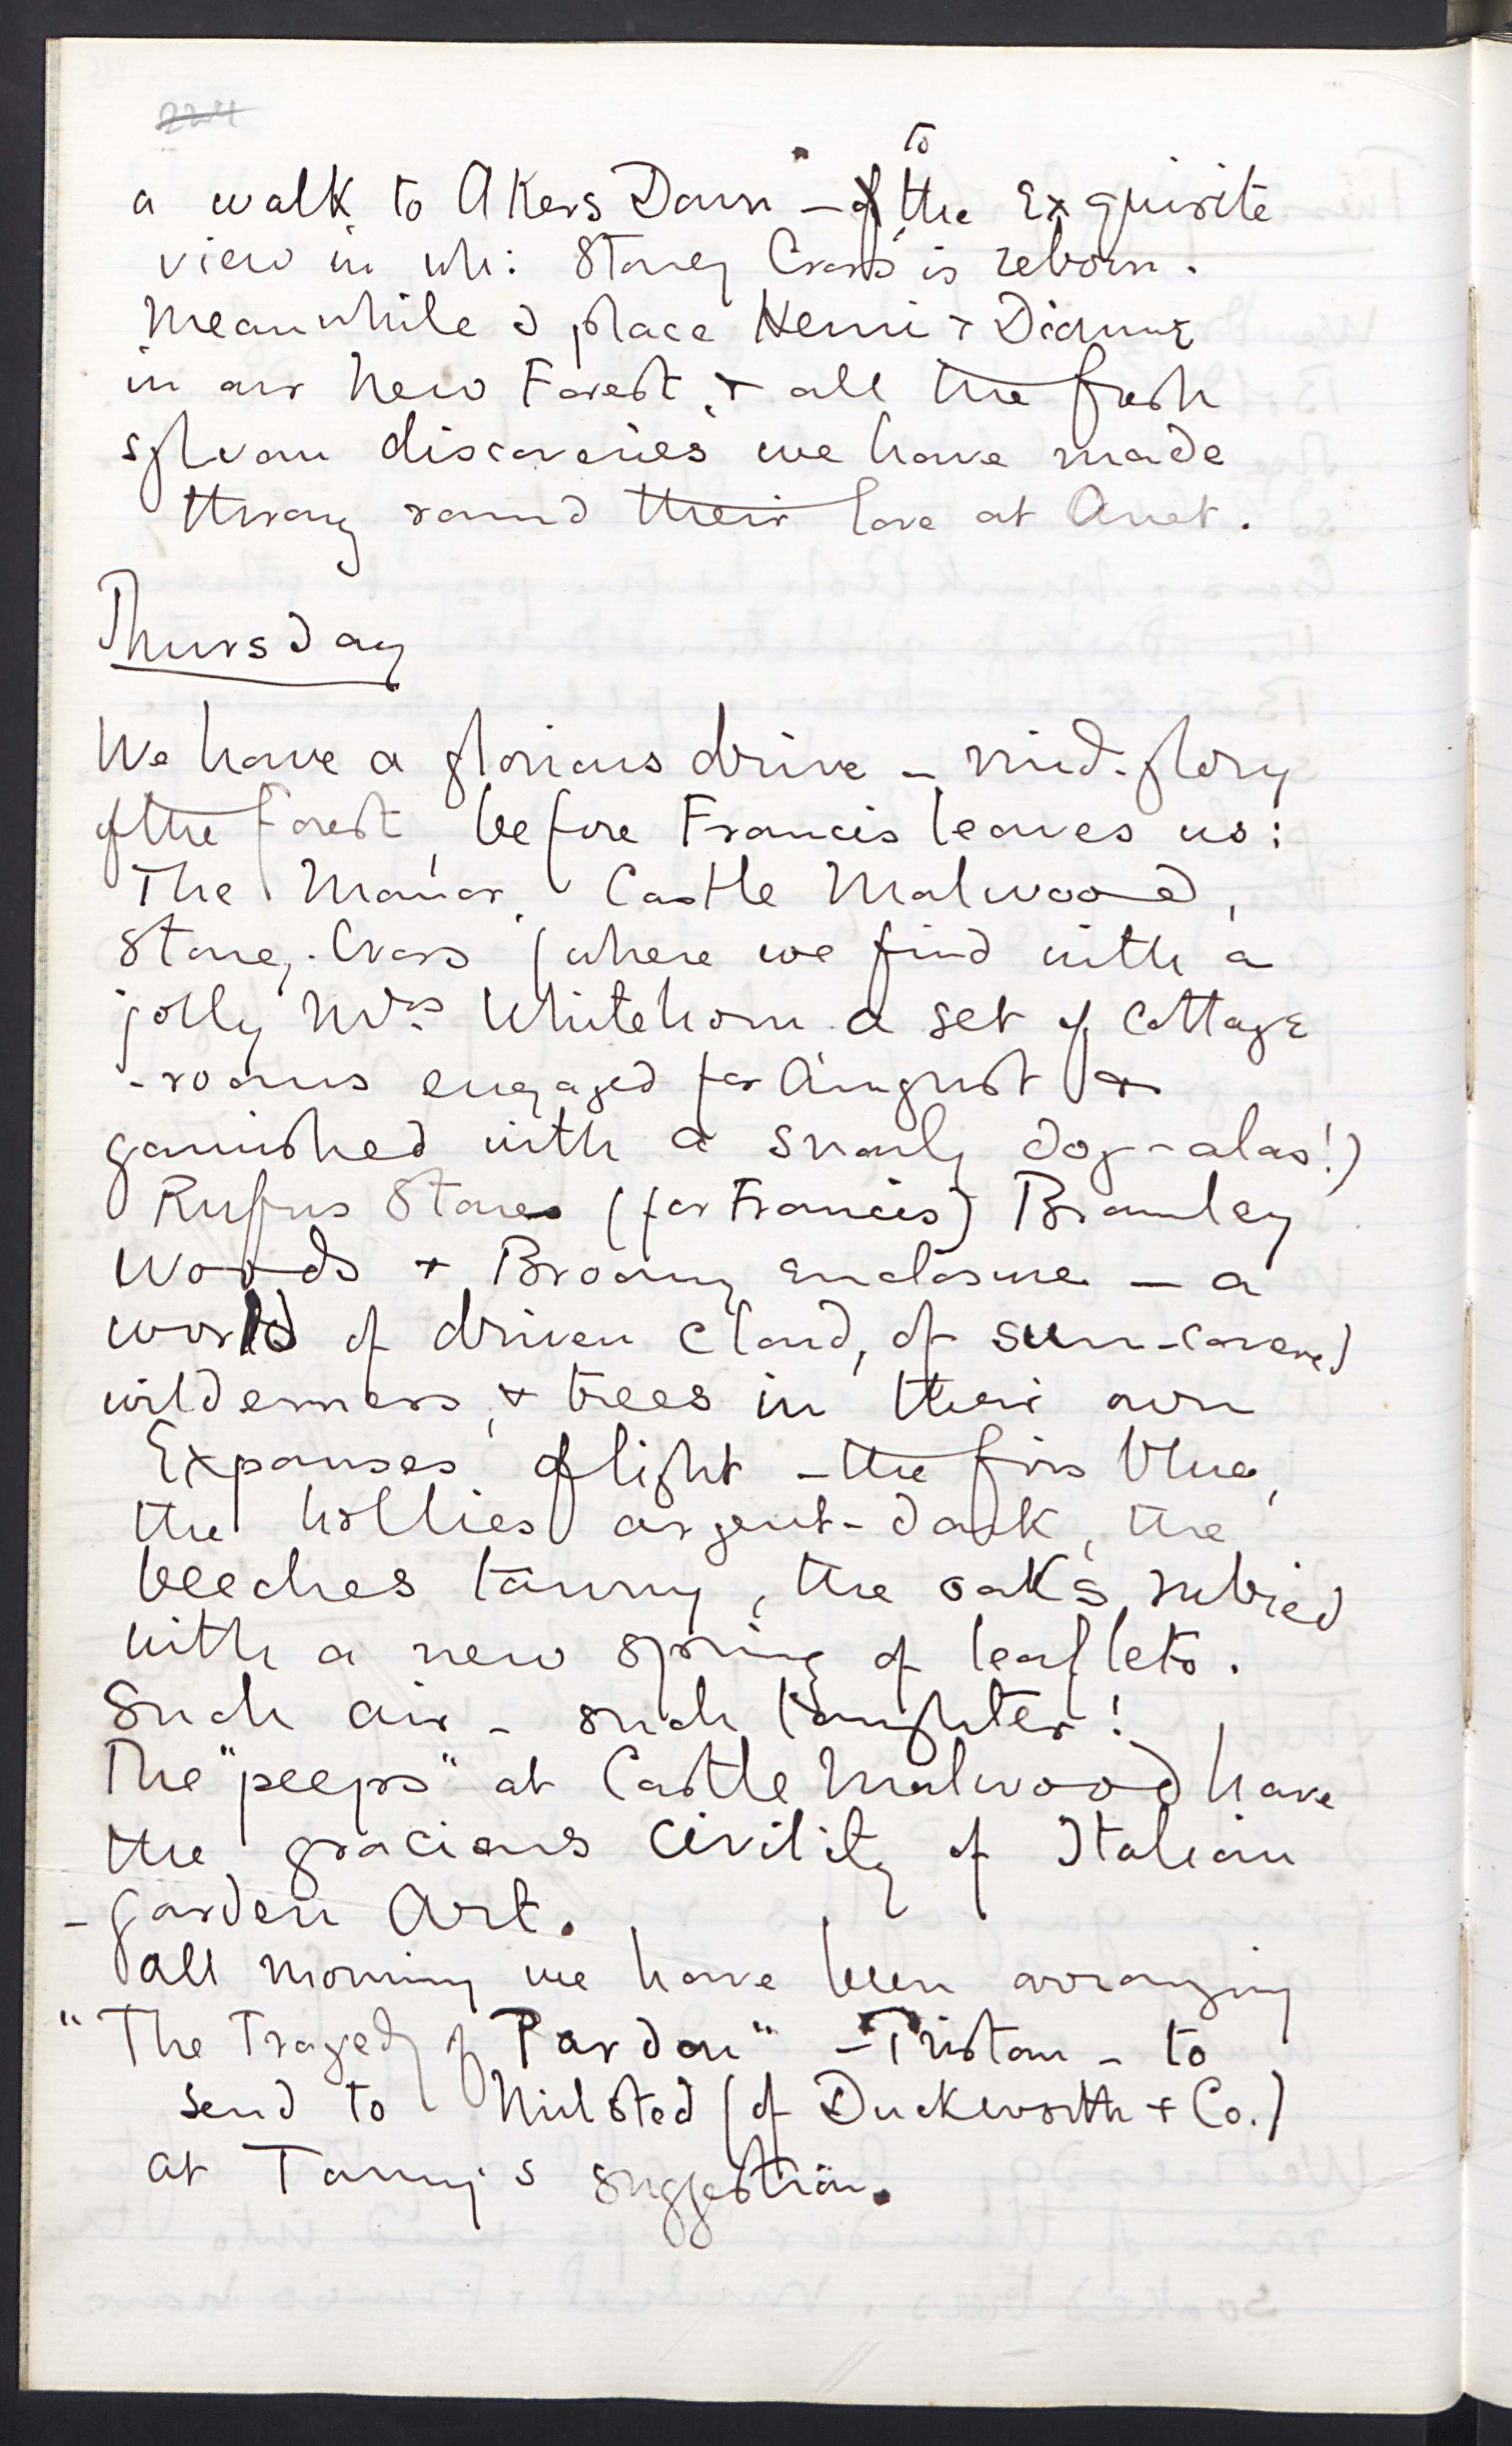 224
a walk to Akers Down - of to the Exquisite
view in wh: Stoney Cross is reborn.
Meanwhile I place Henri & Dianne
in our New Forest, & all the fresh
sylvan discoveries we have made
throng round their love at Anet.
Thursday
We have a glorious drive - mid-glory
of the Forest, before Francis leaves us:
The Manor, Castle Malwood,
Stoney-Cross (where we find with a
jolly Mrs Whitehorn a set of Cottage
-rooms engaged for August &
garnished with a snarly dog - alas!)
Rufus Stones (for Francis) Bramley
Woods & Broomy Enclosure - a
world of driven cloud, of sun-covered
wilderness, & trees in their own
Expanses of light - the firs blue,
the hollies argent-dark, the
beeches tawny, the oaks rubied
with a new spring of leaflets.
Such air - such laughter!
The "peeps" at Castle Malwood have
the gracious civility of Italian
-garden Art.
All morning we have been arranging
"The Tragedy of Pardon" - Tristan - to
send to Milsted (of Duckworth & Co.)
at Tommy's suggestion.